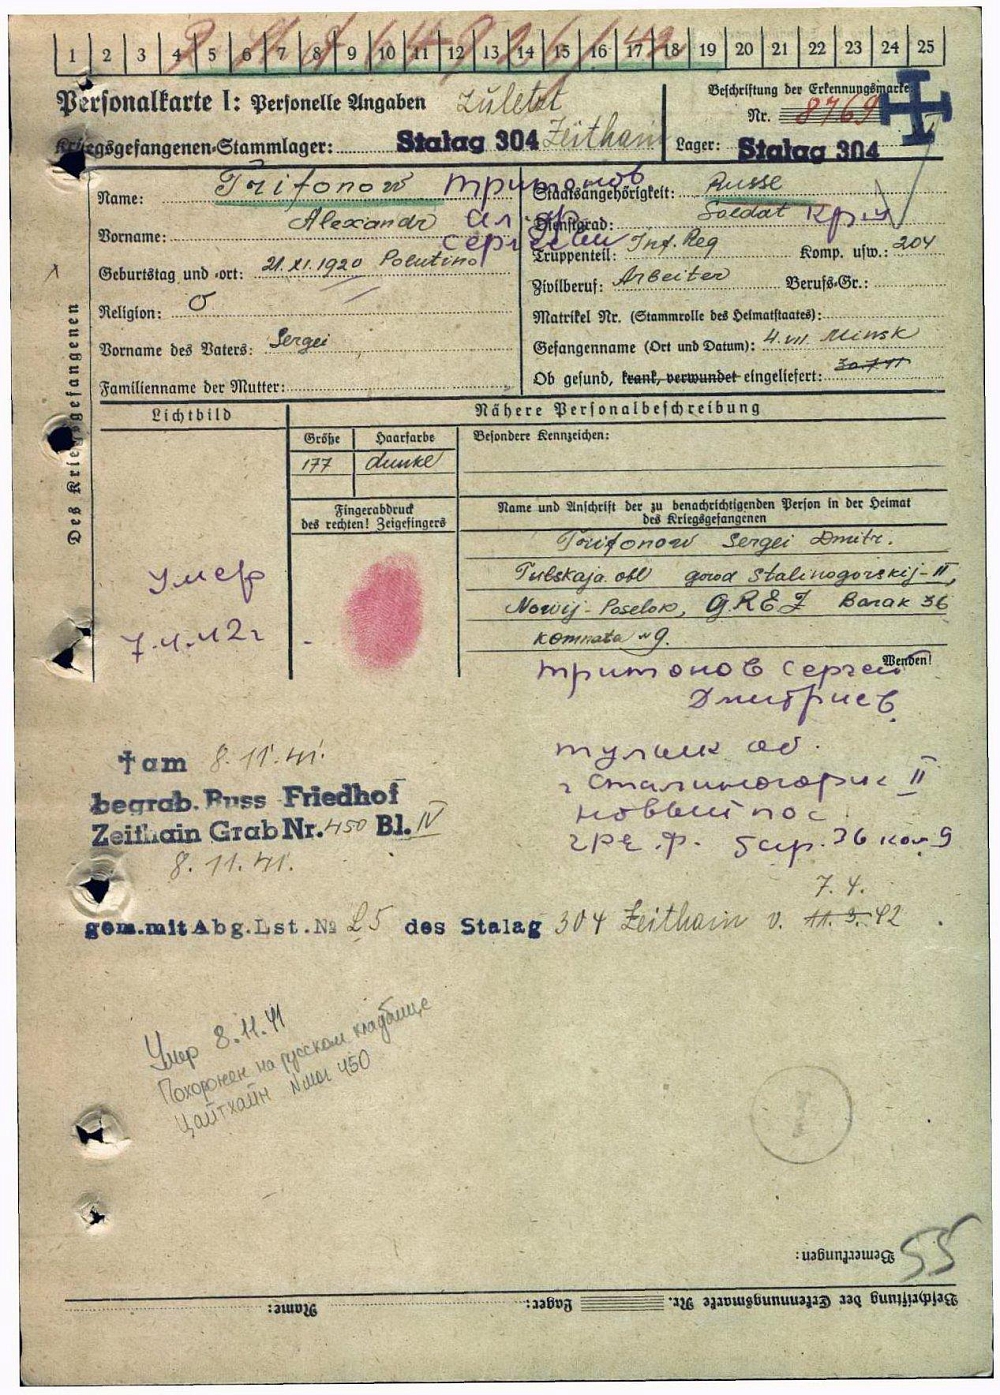 1 2 3 4 5 6 7 8 9 10 11 12 13 14 15 16 17 18 19 20 21 22 23 24 25
Personalkarte I: Personelle Angaben
Zuletzt
Beschriftung der Erkennungsmarke
Nr. 8769
Kriegsgefangenen-Stammlager: Stalag 304 Zeithain
Lager: Stalag 304
Des Kriegsgefangenen
Name: Trifonow
Staatsangehörigkeit: Russe
Vorname: Alexandr
Dienstgrad: Soldat
Truppenteil: Inf. Reg Komp. usw.: 204
Geburtstag und -ort: 21.XI.1920 Polutino
Zivilberuf: Arbeiter Berufs-Gr.:
Religion: O
Matrikel Nr. (Stammrolle des Heimatstaates):
Vorname des Vaters: Sergei
Gefangenname (Ort und Datum): 4.VII. Minsk
Familienname der Mutter:
Ob gesund, krank, verwundet eingeliefert:
Lichtbild
Nähere Personalbeschreibung
Größe Haarfarbe Besondere Kennzeichen:
177 dunkel
Fingerabdruck
des rechten! Zeigefingers
Name und Anschrift der zu benachrichtigenden Person in der Heimat
des Kriegsgefangenen
Trifonow Sergei Dmitr.
Tulskaja obl gorod Stalinogorskij-II,
Nowij-Poselok, GREZ Barak 36
komnata №9.
Wenden!
умер
7.4.42г
тритонов сергей
Дмитриев
† am 8.11.41.
begrab. Russ Friedhof
Zeithain Grab Nr. 450 Bl. IV
8.11.41.
г Сталиногорск II
новый пос
грЕ.ф. бар. 36 ком 9
7.4.
gem. mit Abg. Lst. № 25 des Stalag 304 Zeithain v. 11.3.42.
Умер 8.11.41
Похоронен на русском кладбище
Цайтхайн 450
55
Bemerkungen:
Beschriftung der Erkennungsmarke Nr. Lager: Name: